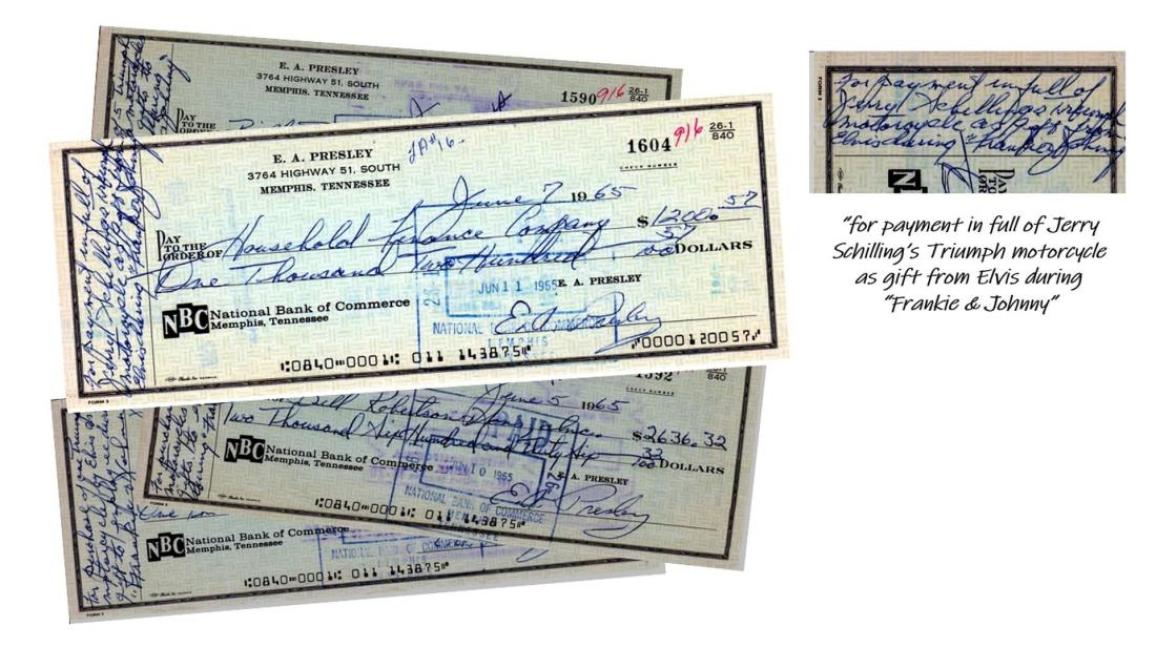 E. A. PRESLEY
3764 HIGHWAY 51, SOUTH
MEMPHIS, TENNESSEE
1590 916 26-1
840
PAY
TO THE
ORDER
E. A. PRESLEY
3764 HIGHWAY 51, SOUTH
MEMPHIS, TENNESSEE
1604 916 26-1
840
CHECK NUMBER
June 7 1965
PAY
TO THE
ORDER OF Household Finance Company $1200.57
One Thousand Two Hundred 57
00 DOLLARS
JUN 11 1965 E. A. PRESLEY
NBC National Bank of Commerce
Memphis, Tennessee
NATIONAL BANK OF COMMERCE
MEMPHIS
E. A. Presley
⑆0840⑉0001⑆ 011 143875⑈ ⑈0000120057⑈
For payment in full of
Jerry Schillings triumph
motorcycle as gift from
Elvis during "Frankie & Johnny"
FORM 3
1592
840
CHECK NUMBER
June 5 1965
Bill Robertson & Sons, Inc. $2636.32
Two Thousand Six Hundred and Thirty Six 32
00 DOLLARS
PAID
JUN 10 1965
E. A. PRESLEY
NBC National Bank of Commerce
Memphis, Tennessee
NATIONAL BANK OF COMMERCE
MEMPHIS
TENNESSEE
⑆0840⑉0001⑆ 011 143875⑈
NBC National Bank of Commerce
Memphis, Tennessee
NATIONAL BANK OF COMMERCE
⑆0840⑉0001⑆ 011 143875⑈
FORM 3
For payment in full of
Jerry Schillings triumph
motorcycle as gift from
Elvis during "Frankie & Johnny"
PAY
TO THE
"for payment in full of Jerry
Schilling's Triumph motorcycle
as gift from Elvis during
"Frankie & Johnny"